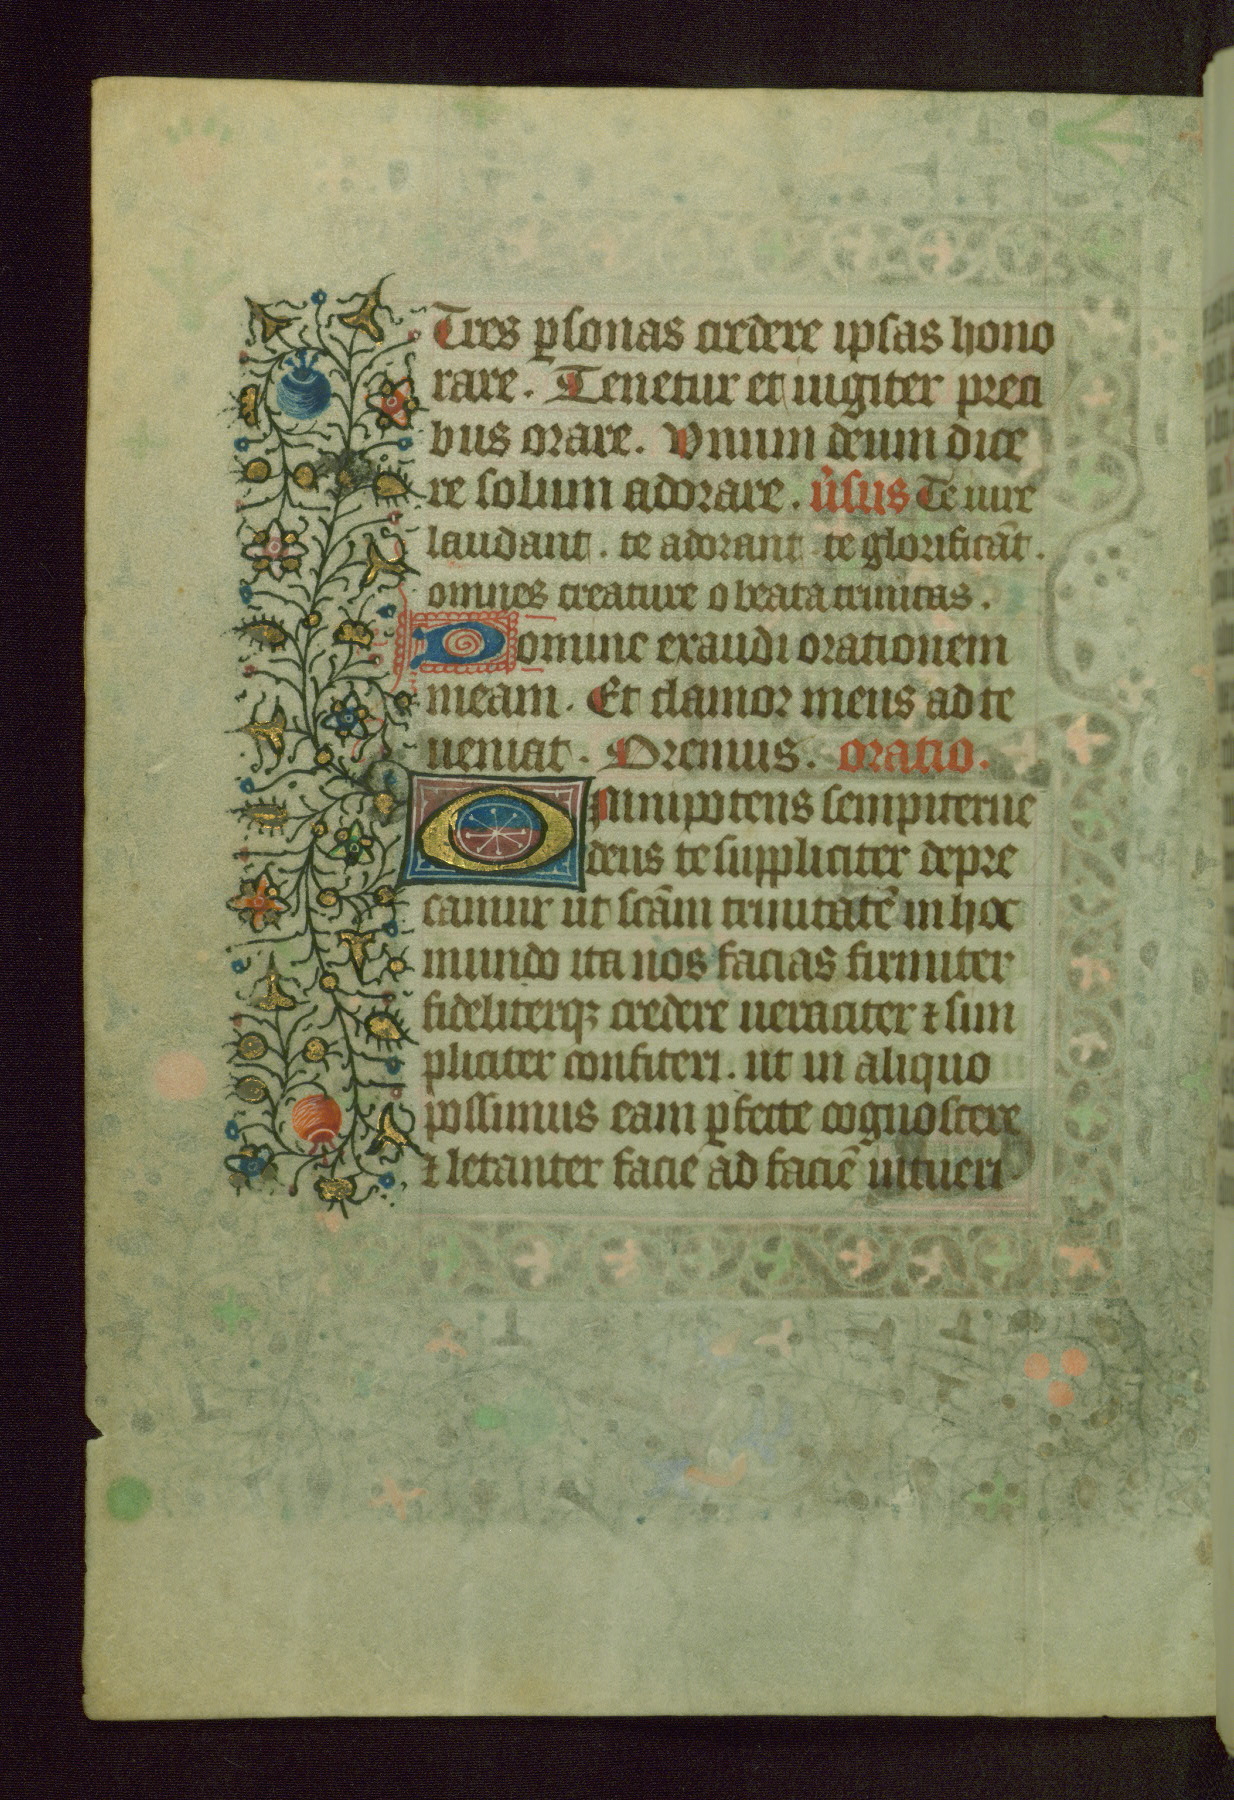 Tres ꝑsonas credere ipsas hono
rare. Tenetur et iugiter preci
bus orare. Vnum deum dice
re solum adorare. v̉sus Te iure
laudant. te adorant te glorificāt.
omnes creature o beata trinitas.
Domine exaudi orationem
meam. Et clamor meus ad te
ueniat. Oremus. oratio.
Omnipotens sempiterne
deus te suppliciter depre
camur ut scām trinitatē in hoc
mundo ita nos facias firmiter
fideliterqꝫ credere ueraciter ⁊ sim
pliciter confiteri. ut in aliquo
possimus eam ꝑfecte cognoscere
⁊ letanter facie ad faciē intueri